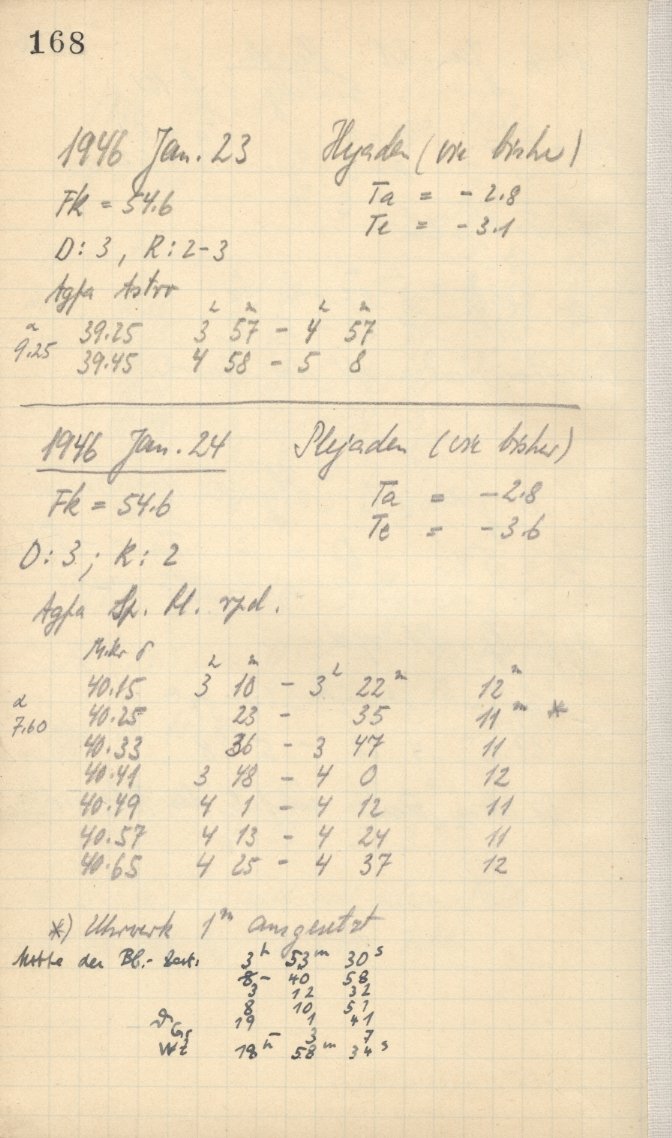 168
1946 Jan. 23 Hyaden (wie bisher)
Fk = 54.6 Ta = -2.8
Te = -3.1
D: 3, R: 2-3
Agfa Astro
α 9.25
39.25 3h 57m - 4h 57m
39.45 4 58 - 5 8
1946 Jan. 24 Plejaden (wie bisher)
Fk = 54.6 Ta = -2.8
Te = -3.6
D: 3; R: 2
Agfa Sp. Pl. rpd.
Mikr δ
40.15 3h 10m - 3h 22m 12m
α 7.60
40.25 23 - 35 11m *
40.33 36 - 3 47 11
40.41 3 48 - 4 0 12
40.49 4 1 - 4 12 11
40.57 4 13 - 4 24 11
40.65 4 25 - 4 37 12
*) Uhrwerk 1m ausgesetzt
Mitte der Bl.-Zeit: 3h 53m 30s
8- 40 58
3 12 32
8 10 51
19 1 41
- 3 7
WZ 18h 58m 34s